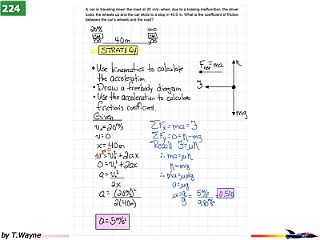 224
A car is traveling down the road at 20 m/s, when, due to a braking malfunction, the driver
locks the wheels up and the car skids to a stop in 40.0 m. What is the coefficient of friction
between the car's wheels and the road?
20 m/s
40m
STRATEGY
• Use kinematics to calculate
the acceleration
• Draw a freebody diagram
• Use the acceleration to calculate
friction's coefficient.
Given
v₀=20 m/s
v=0
x=40m
v²=v₀²+2ax
0=v₀²+2ax
a=v₀²
2x
a=(20 m/s)²
2(40m)
a=5 m/s²
Fnet=ma
n
ℱ
mg
ΣFx=ma=ℱ
ΣFy=0=n-mg
Recall ℱ=μn
∴ma=μn
n=mg
∴ma=μmg
a=μg
μ=a/g=5 m/s²/9.8 m/s²=0.510
by T.Wayne